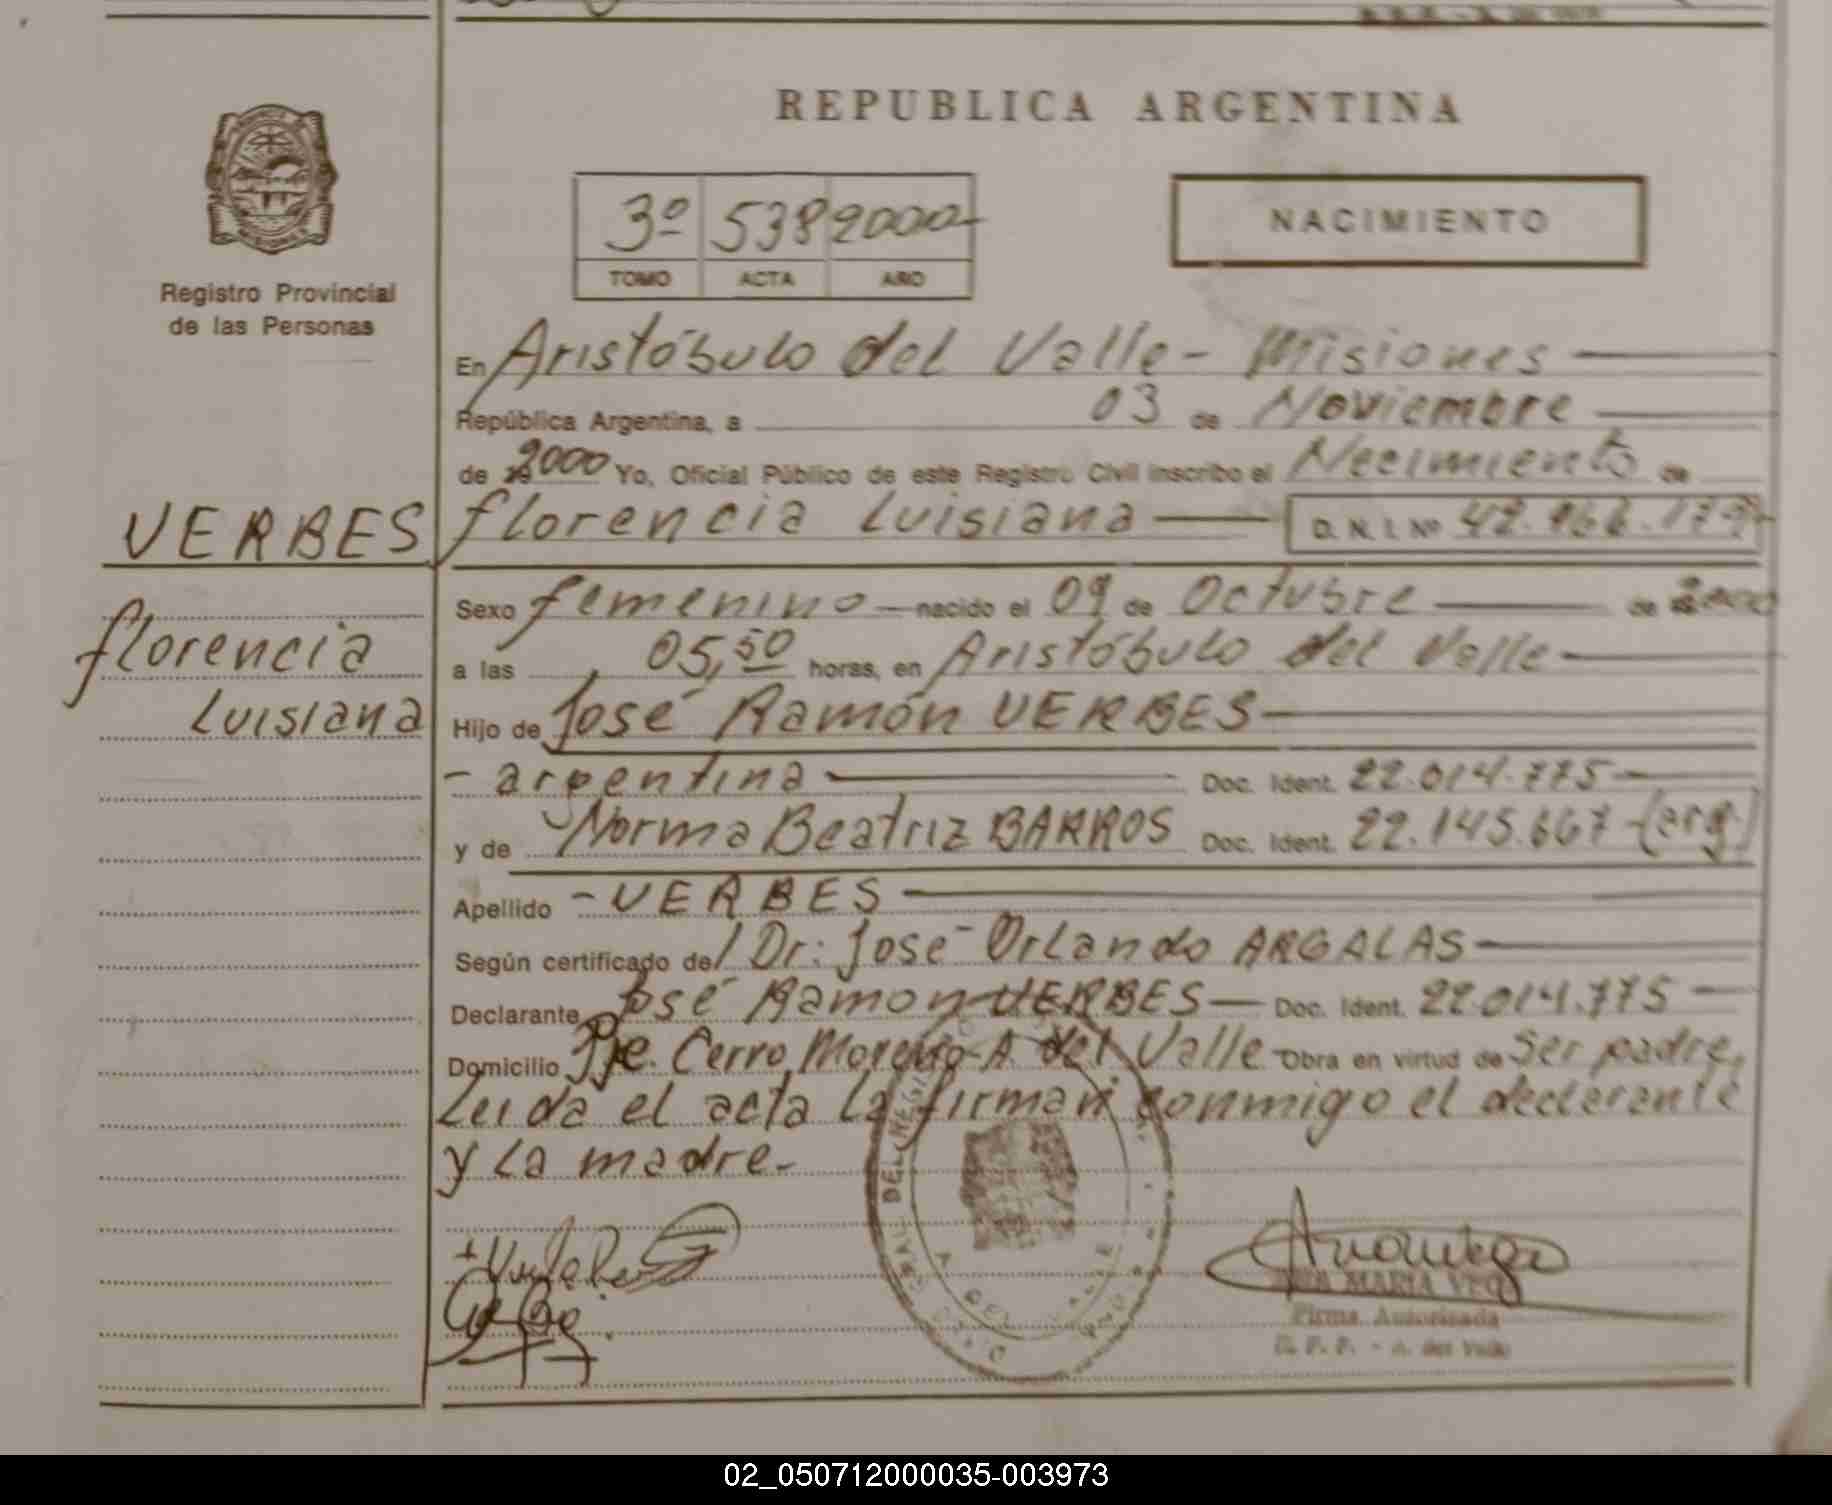 REPUBLICA ARGENTINA
3º 538 2000-
TOMO ACTA AÑO
NACIMIENTO
Registro Provincial
de las Personas
En Aristóbulo del Valle - Misiones
República Argentina, a 03 de Noviembre
de 2000 Yo, Oficial Público de este Registro Civil inscribo el Necimiento de
VERBES florencia Luisiana
D. N. I. Nº
florencia
Luisiana
Sexo femenino nacido el 09 de Octubre de 2000
a las 05,50 horas, en Aristóbulo del Valle
Hijo de José Ramón VERBES
- argentina Doc. Ident. 22.014.775
y de Norma Beatriz BARROS Doc. Ident. 22.145.667 - (arg)
Apellido - VERBES
Según certificado del Dr: José Orlando ARGALAS
Declarante José Ramon VERBES Doc. Ident. 22.014.775
Domicilio Pje. Cerro Moreno - A. del Valle - Obra en virtud de Ser padre,
Leida el acta la firman conmigo el declerente
y la madre.-
ANA MARIA
Firma Autorizada
A. del Valle
02_050712000035-003973